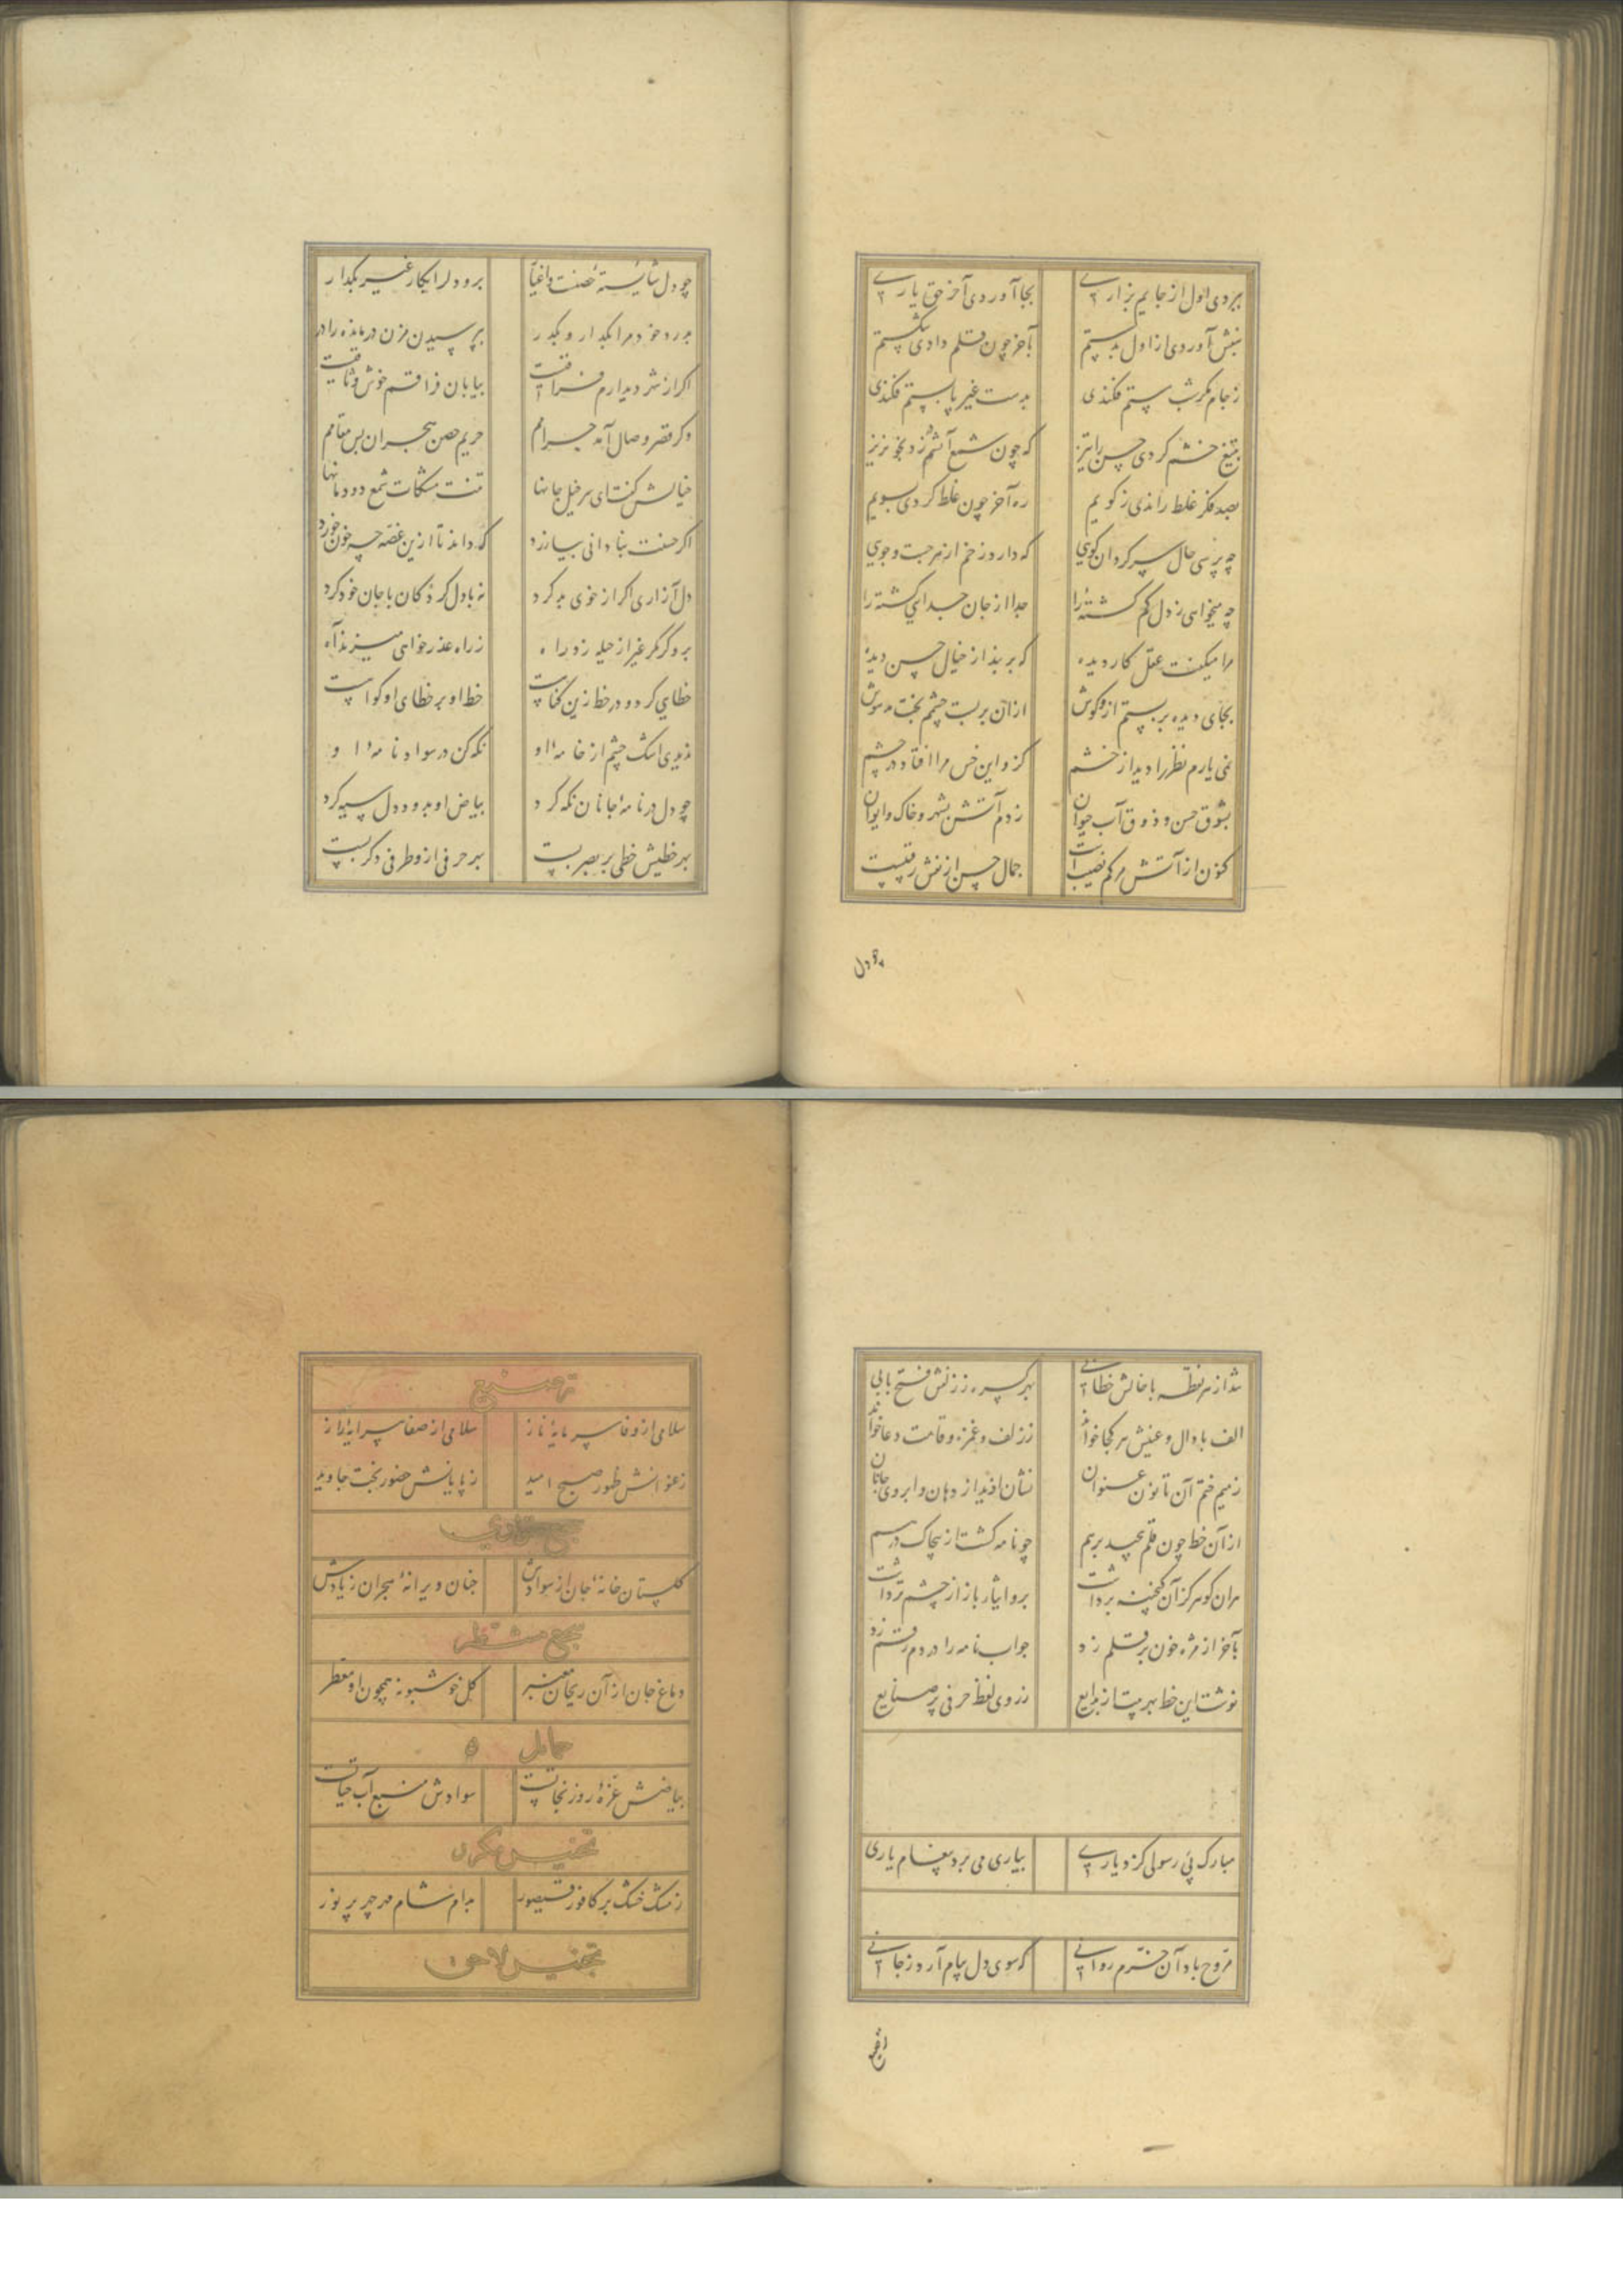 ببردی اول از جایم بزاری بجا آوردی آخر حق یاری
بنبش آوردی از اول بدستم بآخر چون قلم دادی شکستم
ز جام مکر شستم فکندی بدست غیر پابستم فکندی
بتیغ خشم کردی حسن را تیز که چون شمع آتشم زد بخونریز
بصد فکر غلط راندی ز کویم ره آخر چون غلط کردی بسویم
چه پرسی حال سرگردان کویی که دارد زخم از هر جست وجویی
چه میخواهی ز دل گم گشتهٔ را جدا از جان جدایی گشته را
مرا میگفت عقل کار دیده که بربند از خیال حسن دیده
بجای دیده بربستم ازو گوش از آن بربست چشم بخت مدهوش
نمی یارم نظر را دید از خشم کزو این خس مرا افتاد در چشم
بشوق حسن و ذوق آب حیوان زدم آتش بشهر و خاک و ایوان
کنون از آتش مرگم نصیب است جمال حسن از نقش رقیبست
چو دل
چو دل شایستهٔ حسنت و اغیار برو دل را بکار غیر بگذار
بدرد خود مرا بگذار و بگذر بپرسیدن مزن درمانده را در
اگر از شر دیدارم فراقست بیابان فراقم خوش وثاقیست
وگر قصر وصال آمد حرامم حریم حصن هجران بس مقامم
خیالش گفت ای سرخیل جانها تنت مشکات شمع دودمانها
اگر حسنت بنادانی بیازرد که داند تا ازین غصه چه خون خورد
دل آزاری اگر از خوی بد کرد نه با دل کرد کان با جان خود کرد
برو گر مکر غیر از حیله زد راه ز راه عذرخواهی میزند آه
خطایی کرد و در خط زین گناهست خط او بر خطای او گواهست
ندیدی اشک چشم از خامهٔ او نگه کن در سواد نامهٔ او
چو دل در نامهٔ جانان نگه کرد بیاض او بدود دل سیه کرد
بهر خطیش خطی بر بصر بست بهر حرفی ازو طرفی دگر بست
شد از هر نقطه با خالش خطابی بهر کسره ز زلفش فتح بابی
الف با دال و عینش هر کجا خواند ز زلف و غمزه و قامت دعا خواند
ز میم ختم آن تا نون عنوان نشان او دید از دهان و ابروی جانان
از آن خط چون قلم پیچید برهم چو نامه گشت از پیچاک درهم
هران گوهر کز آن گنجینه برداشت برو ایثار باز از چشم تر داشت
بآخر از مژه خون بر قلم زد جواب نامه را در دم رقم زد
نوشت این خط بهر بیت از بدایع ز روی لفظ حرفی پر صنایع
مبارک پی رسولی کز دیاری بیاری می برد پیغام یاری
مروح باد آن خرم روانی که سوی دل پیام آرد ز جانی
ترصیع
سلامی از وفا سرمایهٔ ناز سلامی از صفا پیرایهٔ راز
ز عنوانش ظهور صبح امید ز پایانش حضور بخت جاوید
سجع متوازی
گلستان خانهٔ جان از سوادش جنان ویرانهٔ هجران ز یادش
سجع مشطر
دماغ جان از آن ریحان معنبر گل خوشبو نه همچون او معطر
بیاضش غرهٔ روز نجاتست سوادش منبع آب حیاتست
تجنیس مکرر
ز مشک خشک بر کافور قیصور مدام شام مه چهر پر نور
تجنیس لاحق